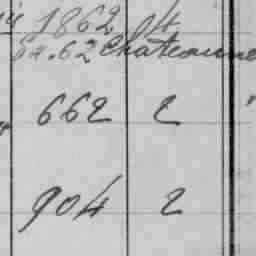 1862 04
62 Chateaune
662 2
904 2